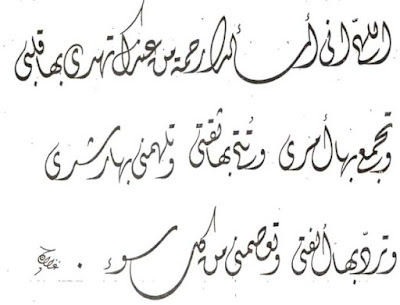 اللهم انى أسألك رحمة من عندك تهدى بها قلبى
وتجمع بها أمرى وتثبت بها ثقتى وتلهمنى بها رشدى
وترد بها ألفتى وتعصمنى من كل سوء .